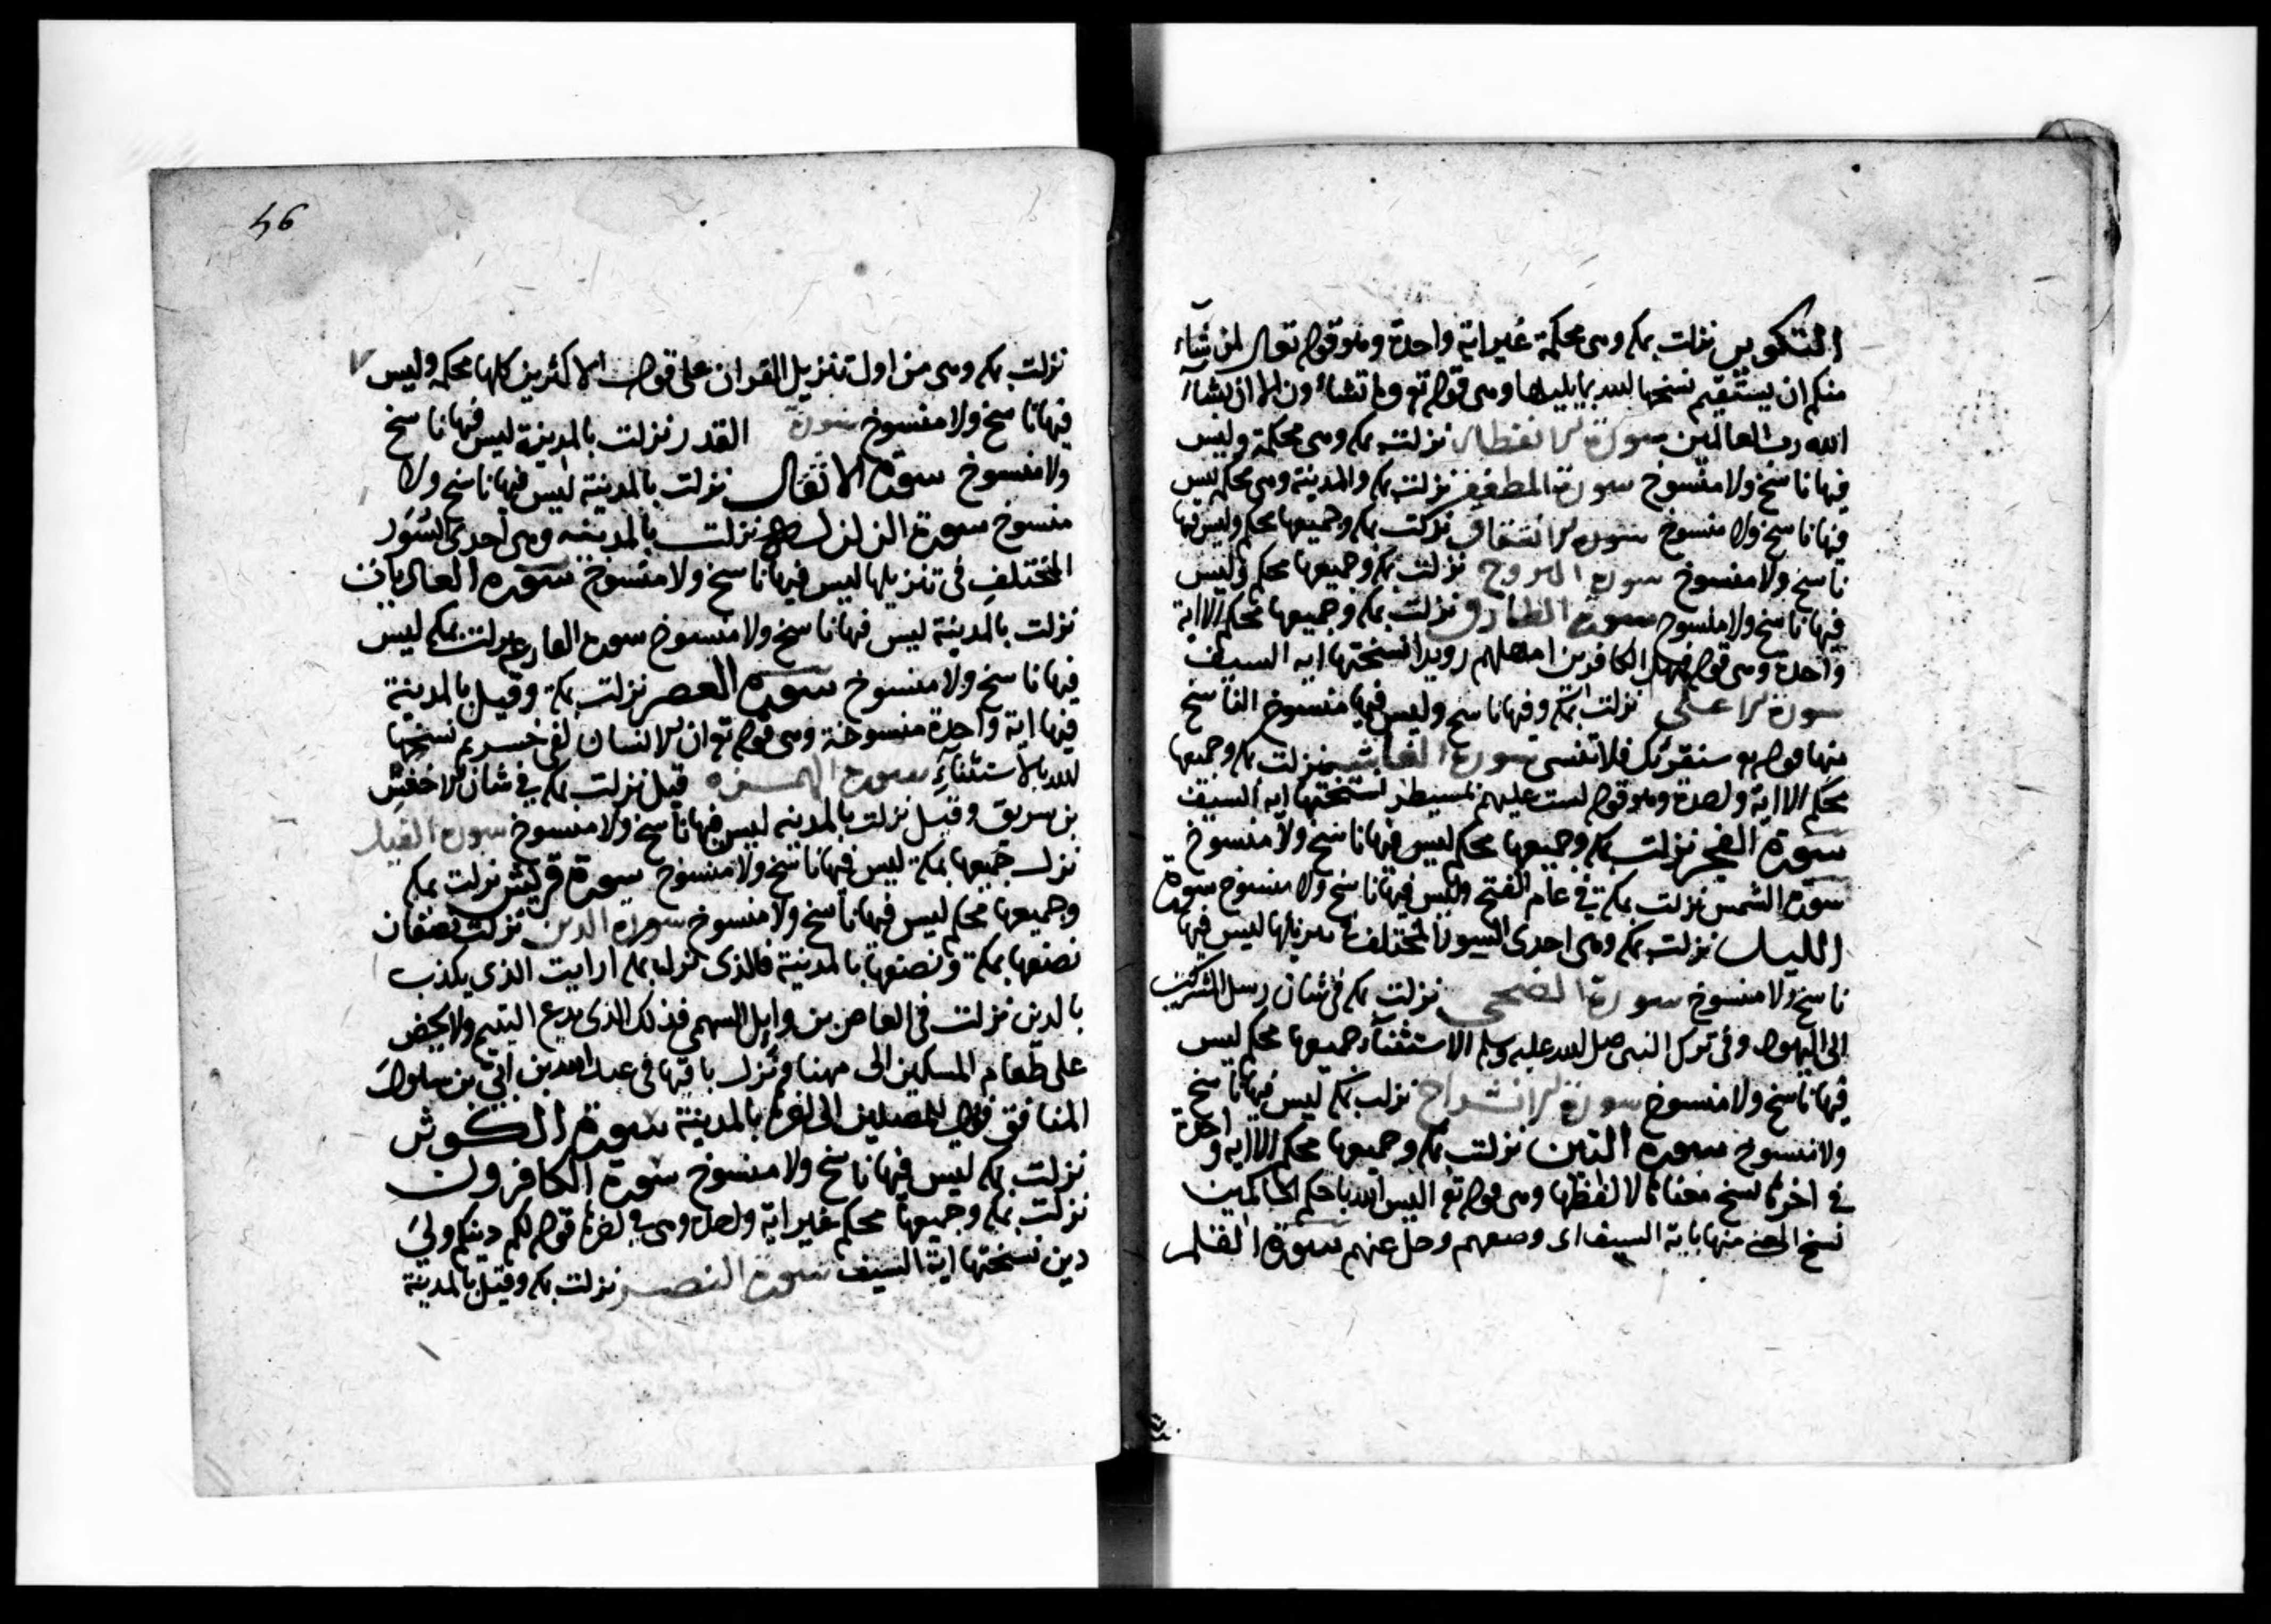 التكوير نزلت بمكه وهى محكمة غير اية واحدة وهو قوله تعالى لمن شآء
منكم ان يستقيم نسخها الله بما يليها وهى قوله تع وما تشاءون الا ان يشآء
الله رب العالمين سورة الانفطار نزلت بمكه وهى محكمة وليس
فيها ناسخ ولا منسوخ سورة المطففين نزلت بمكه والمدينة وهى محكم ليس
فيها ناسخ ولا منسوخ سورة الانشقاق نزلت بمكه وجميعها محكم وليس فيها
ناسخ ولا منسوخ سورة البروج نزلت بمكه وجميعها محكم وليس
فيها ناسخ ولا منسوخ سورة الطارق نزلت بمكه وجميعها محكم الا اية
واحدة وهى قوله فمهل الكافرين امهلهم رويدا نسختها ايه السيف
سورة الاعلى نزلت بمكه وفيها ناسخ وليس فيها منسوخ الناسخ
منها قوله تع سنقرئك فلا تنسى سورة الغاشيه نزلت بمكه وجميعها
محكم الا اية واحدة وهو قوله لست عليهم بمسيطر نسختها ايه السيف
سورة الفجر نزلت بمكه وجميعها محكم ليس فيها ناسخ ولا منسوخ
سورة الشمس نزلت بمكة في عام الفتح وليس فيها ناسخ ولا منسوخ سورة
الليل نزلت بمكه وهى احدى السور المختلف فى تنزيلها ليس فيها
ناسخ ولا منسوخ سورة الضحى نزلت بمكه فى شان رسل المشركين
الى اليهود وفى ترك النبى صلى الله عليه وسلم الاستثنآء جميعها محكم ليس
فيها ناسخ ولا منسوخ سورة الانشراح نزلت بمكه ليس فيها ناسخ
ولا منسوخ سورة التين نزلت بمكه وجميعها محكم الا ايه واحدة
فى اخرها نسخ معناها لا لفظها وهى قوله تع اليس الله باحكم الحاكمين
نسخ المعنى منها باية السيف اى وصعهم وخل عنهم سورة القلم
46
نزلت بمكه وهى من اول تنزيل القران على قول الاكثرين كلها محكمه وليس
فيها ناسخ ولا منسوخ سورة القدر نزلت بالمدينة ليس فيها ناسخ
ولا منسوخ سورة الانفال نزلت بالمدينة ليس فيها ناسخ ولا
منسوخ سورة الزلزله نزلت بالمدينه وهى احدى السور
المختلف فى تنزيلها ليس فيها ناسخ ولا منسوخ سورة العاديات
نزلت بالمدينة ليس فيها ناسخ ولا منسوخ سورة القارعه نزلت بمكه ليس
فيها ناسخ ولا منسوخ سورة العصر نزلت بمكة وقيل بالمدينة
فيها اية واحدة منسوخة وهى قوله تع ان الانسان لفى خسر ثم نسخها
الله بالاستثنآء سورة الهمزه قيل نزلت بمكه فى شان الاخنس
بن سريق وقيل نزلت بالمدينه ليس فيها ناسخ ولا منسوخ سورة الفيل
نزلت جميعها بمكة ليس فيها ناسخ ولا منسوخ سورة قريش نزلت بمكه
وجميعها محكم ليس فيها ناسخ ولا منسوخ سورة الدين نزلت نصفان
نصفها بمكة ونصفها بالمدينة فالذى نزل بمكه ارايت الذى يكذب
بالدين نزلت فى العاص بن وايل السهمى فذلك الذى يدع اليتيم ولا يحض
على طعام المسكين الى ههنا ونزل باقيها فى عبد الله بن ابى بن سلول
المنافق فويل للمصلين الى اخرها بالمدينة سورة الكوثر
نزلت بمكه ليس فيها ناسخ ولا منسوخ سورة الكافرون
نزلت بمكه وجميعها محكم غير اية واحدة وهى فى اخرها قوله لكم دينكم ولي
دين نسختها اية السيف سورة النصر نزلت بمكه وقيل بالمدينة